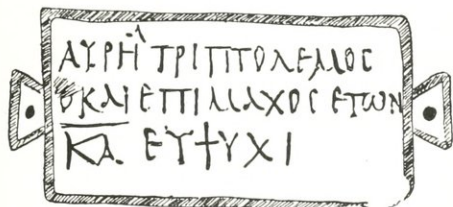 ΑΥΡΗΛ ΤΡΙΠΤΟΛΕΜΟϹ
Ο ΚΑΙ ΕΠΙΜΑΧΟϹ ΕΤΩΝ
ΚΑ. ΕΥΨΥΧΙ